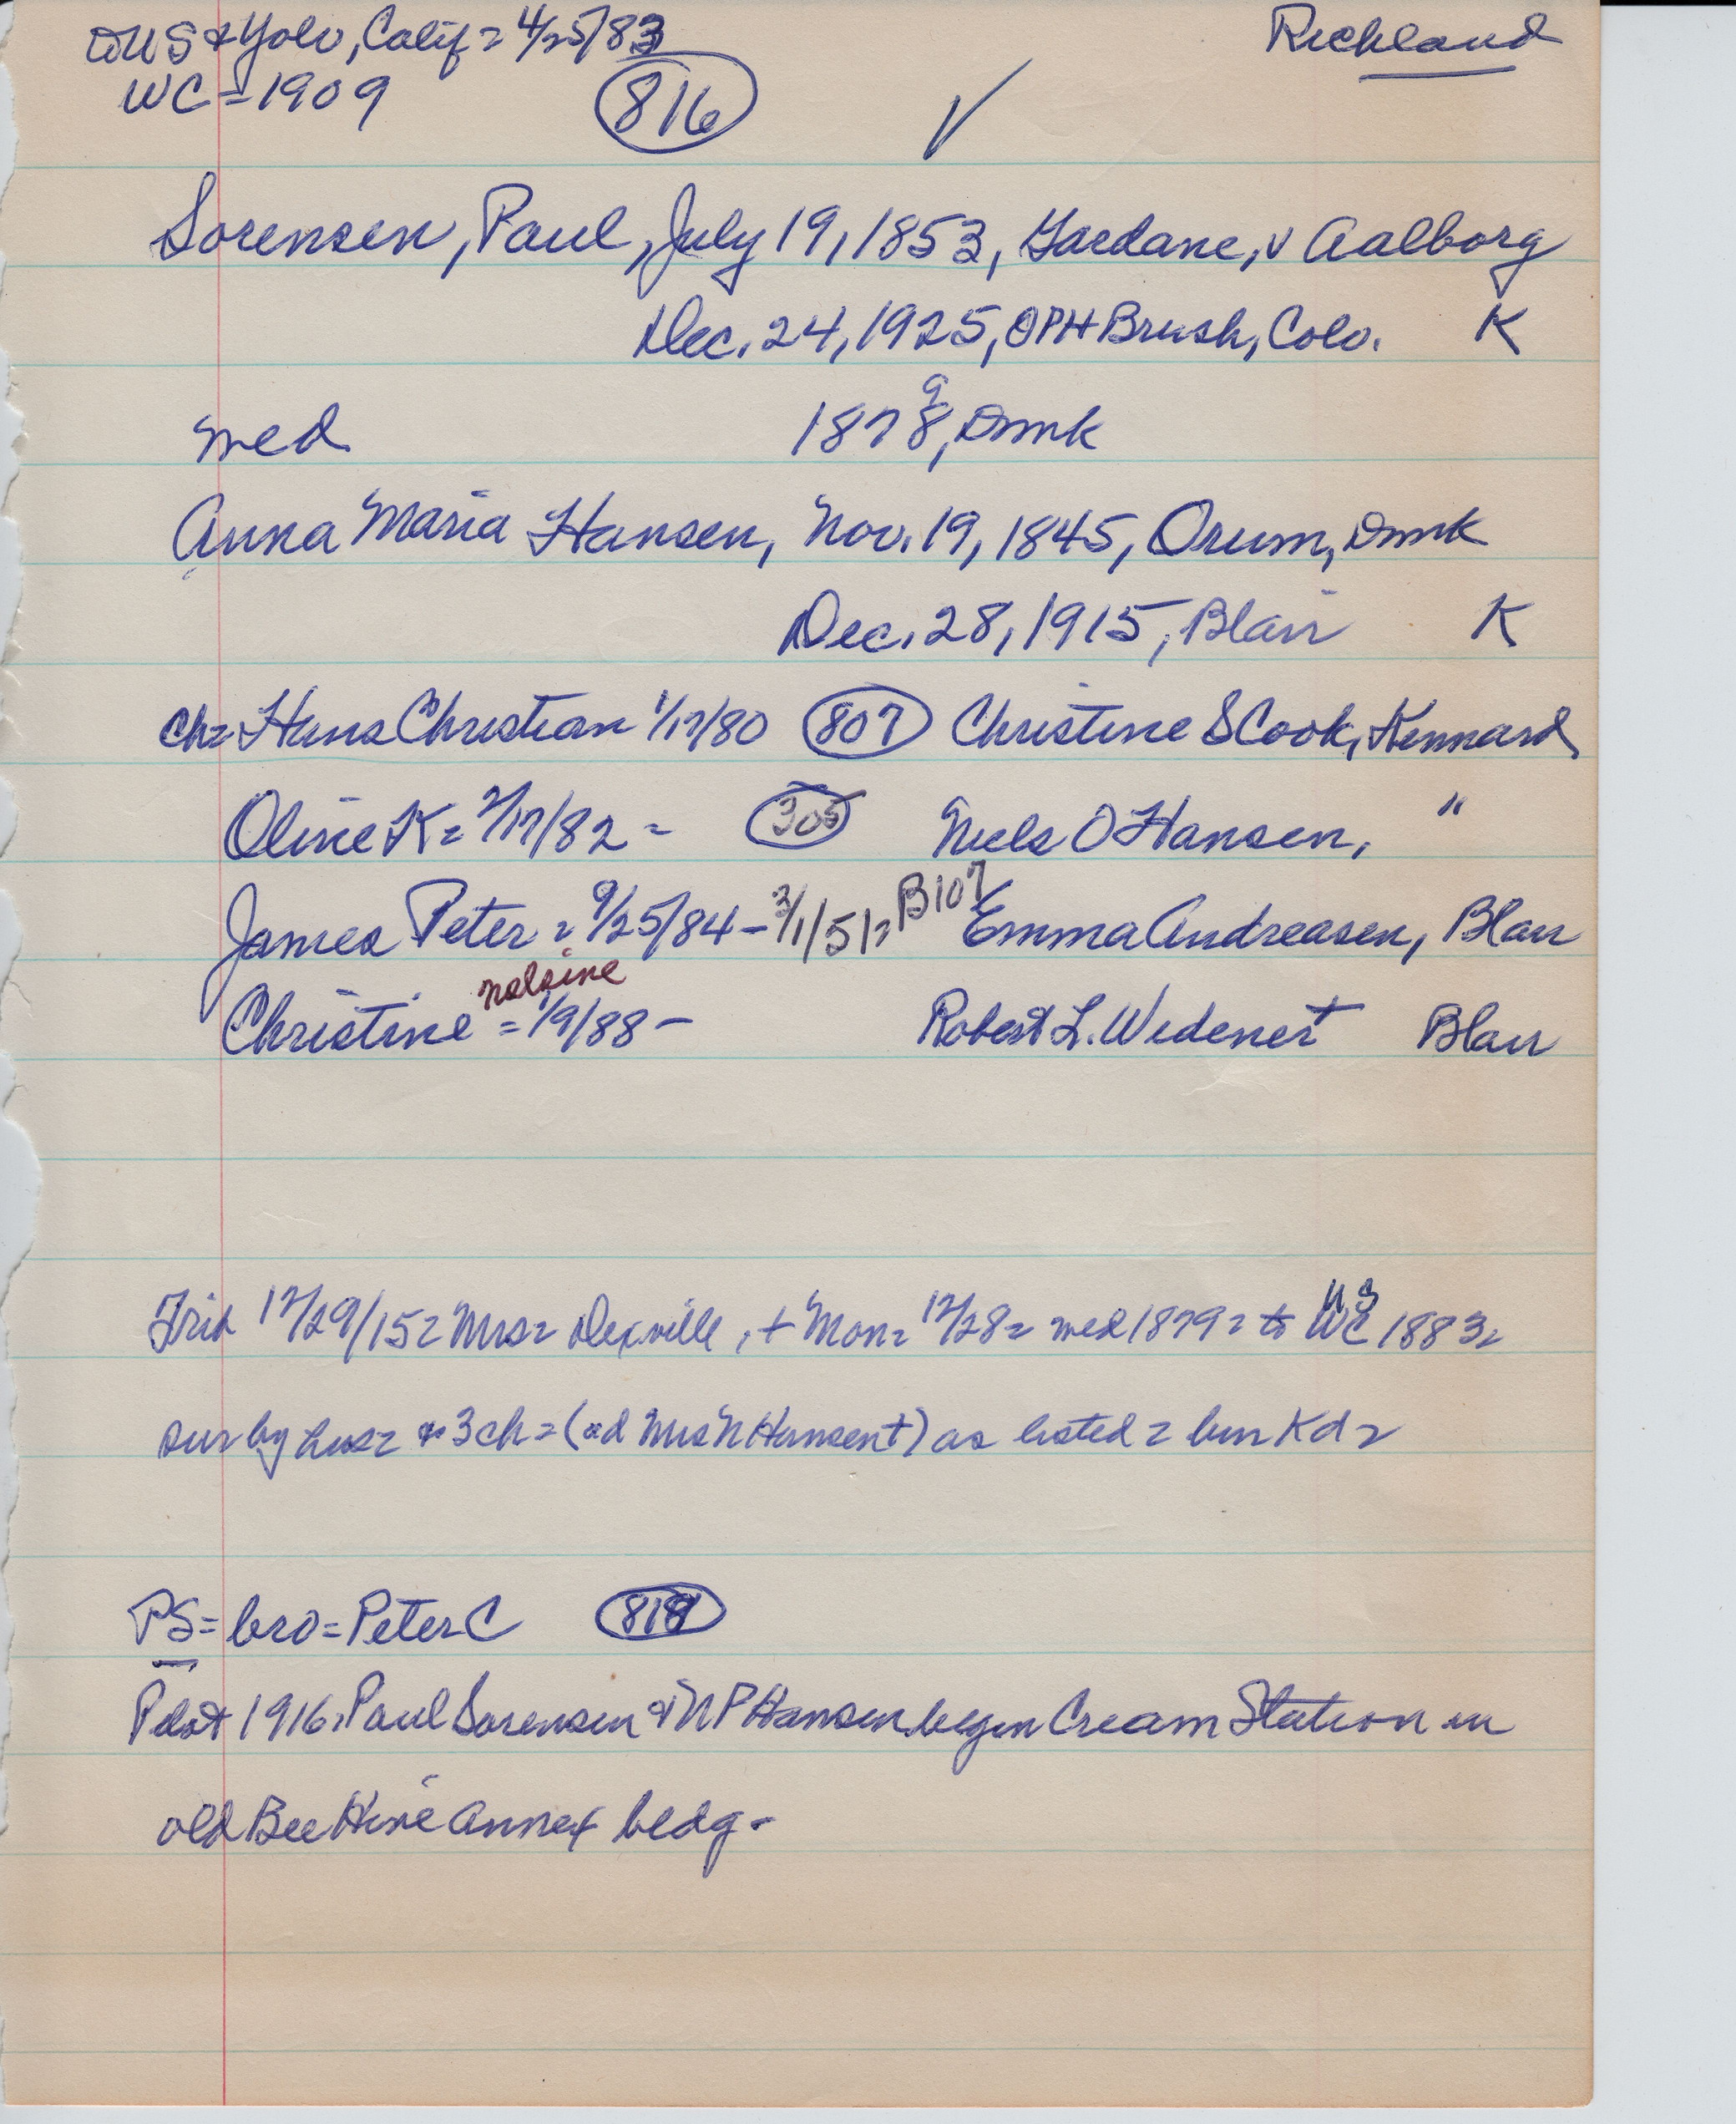 to US & Yolo, Calif = 4/25/83
Richland
WC = 1909
816
✓
Sorensen, Paul, July 19, 1853, Gaedane, v Aalborg
Dec. 24, 1925, OPH Brush, Colo. K
9
med 1878, Dmk
Anna Maria Hansen, Nov. 19, 1845, Orum, Dmk
Dec. 28, 1915, Blair K
ch = Hans Christian 1/17/80 807 Christine S Cook, Kennard
Oline K = 2/17/82 - 305 Niels O Hansen, "
James Peter = 9/25/84 - 3/1/51 = B107 Emma Andreasen, Blair
Christine = 1/9/88 - Robert L. Widener + Blair
US
Trib 12/29/15 = Mrs = Dexville, + Mon = 12/28 = med 1879 = to WC 1883 =
sur by hus = & 3 ch = (ad Mrs N Hansen +) as listed = bur Kd =
PS = bro = Peter C 818
Pilot 1916, Paul Sorensen & N P Hansen began Cream Station in
old Bee Hive annex bldg -